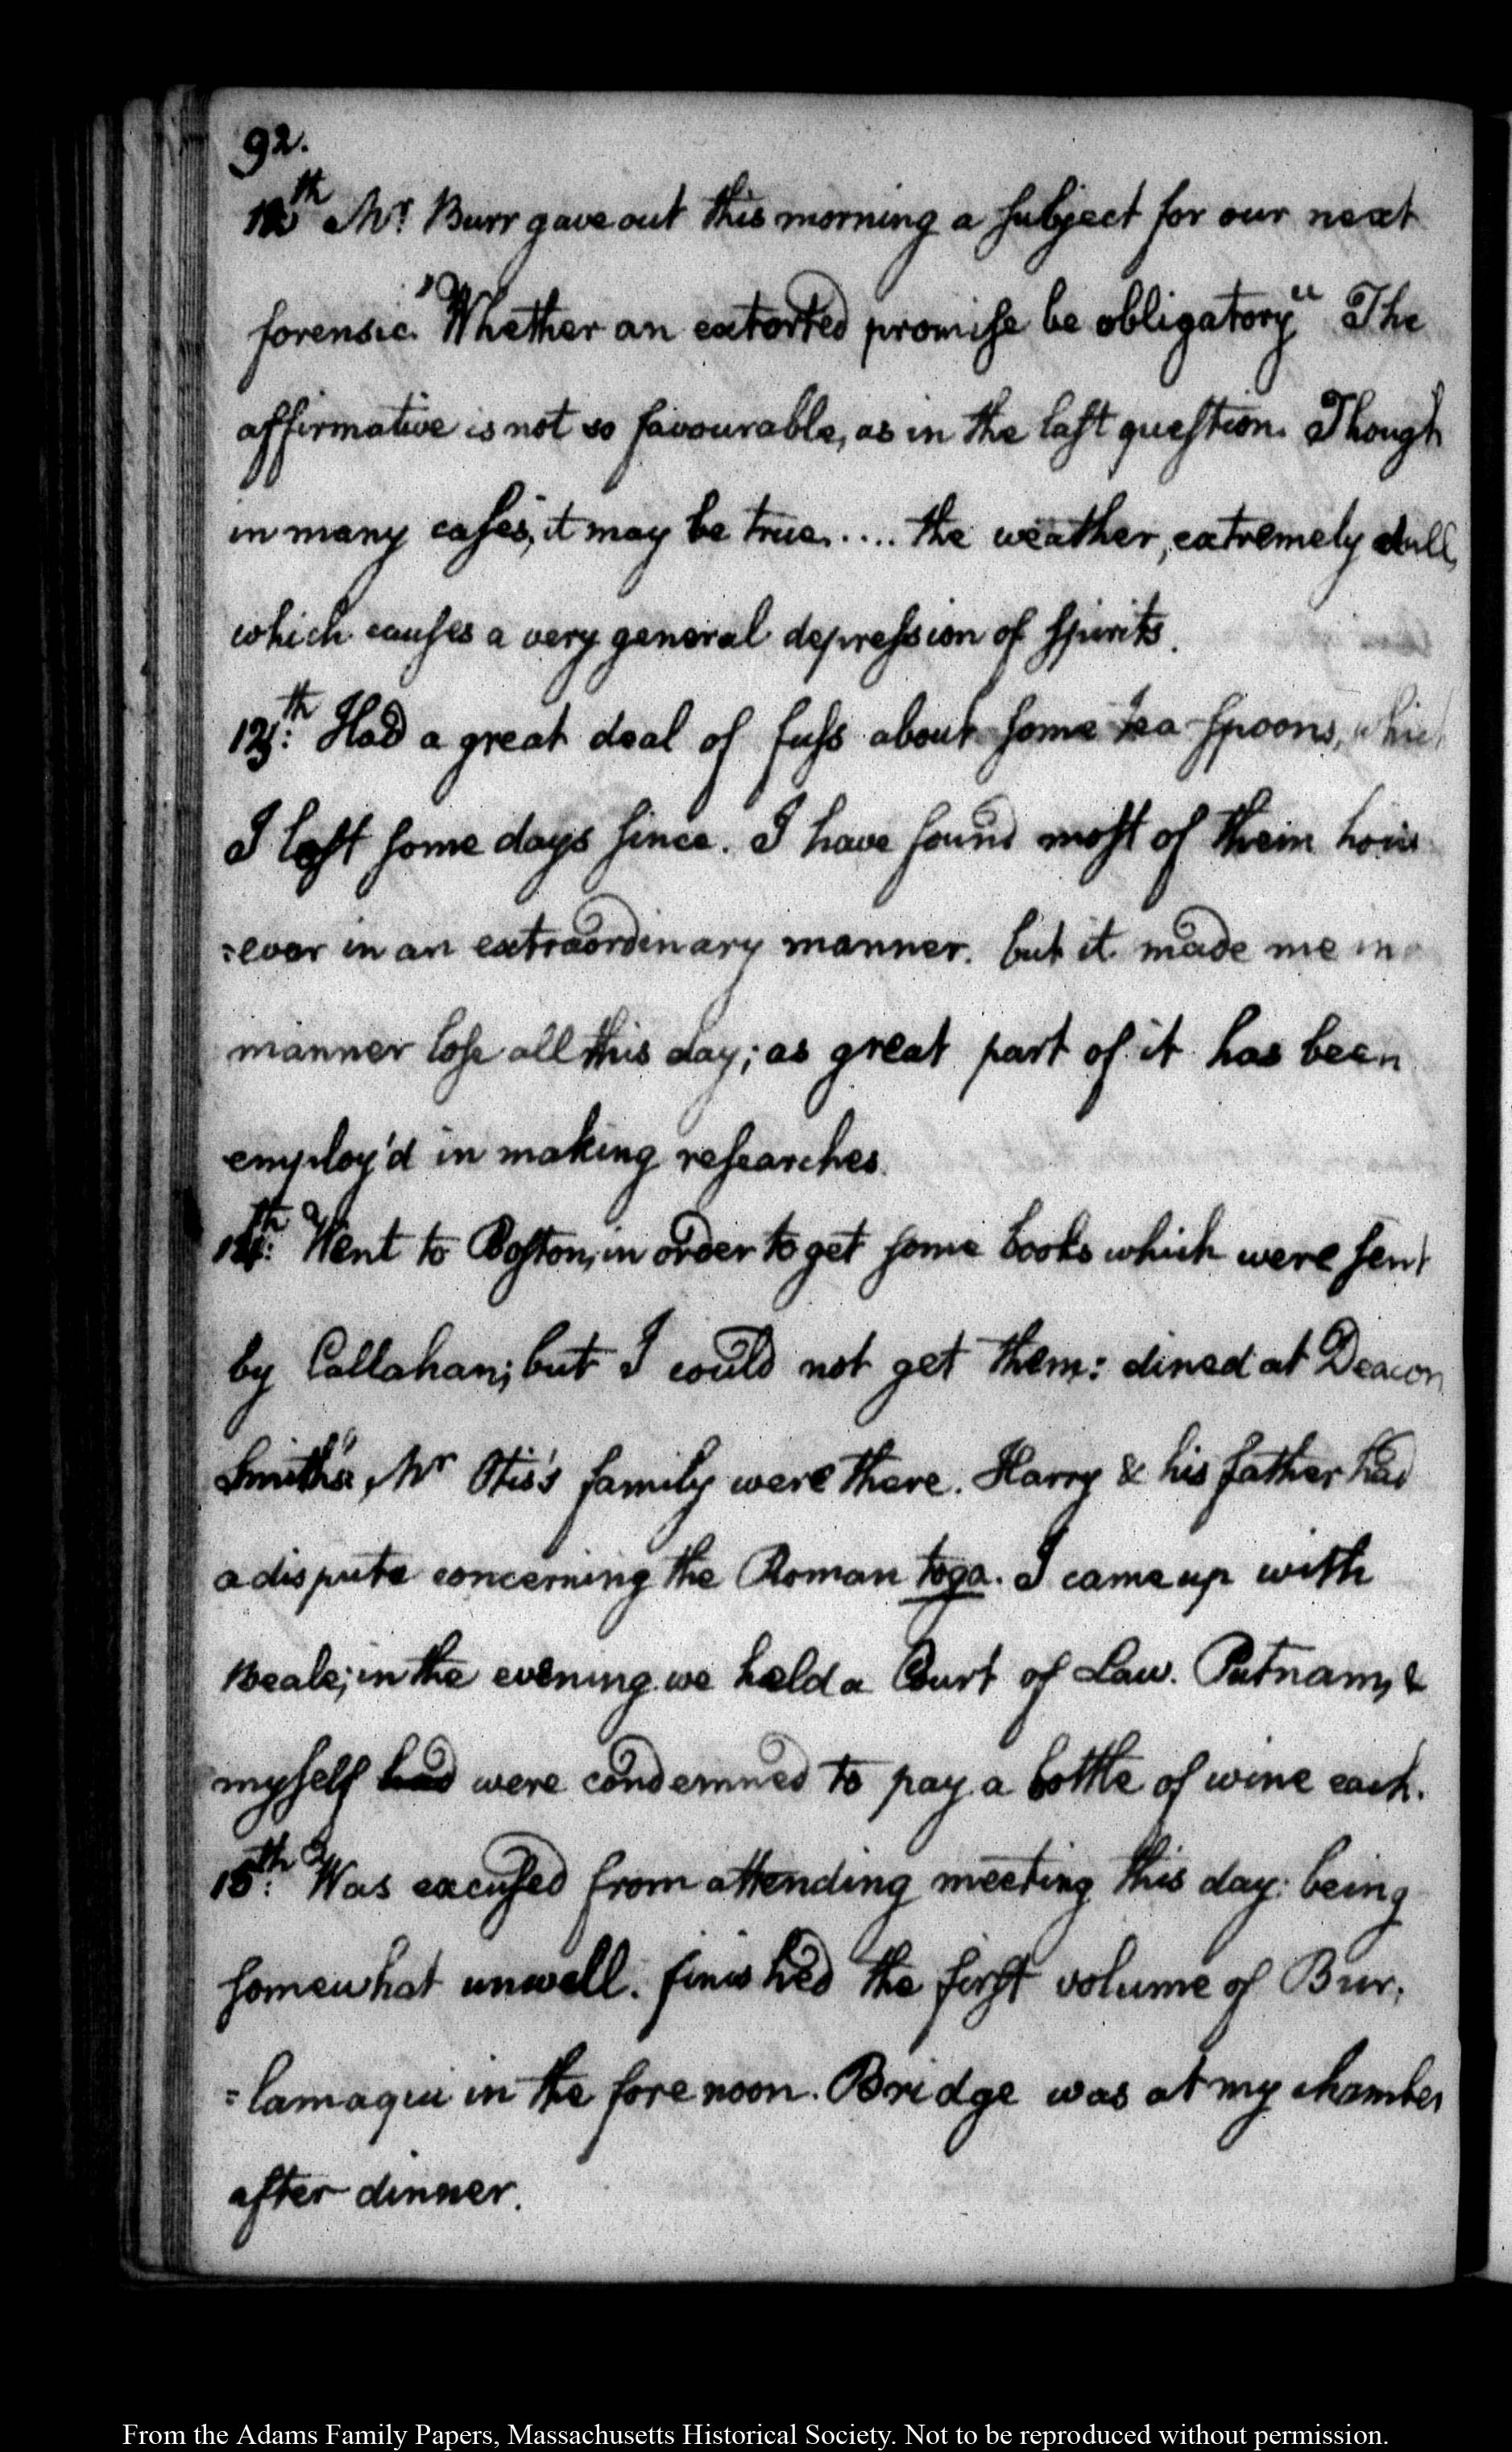 92.
12th Mr. Burr gave out this morning a subject for our next
forensic. "Whether an extorted promise be obligatory" The
affirmative is not so favourable, as in the last question. Though
in many cases, it may be true.... the weather, extremely dull,
which causes a very general depression of spirits.
13th: Had a great deal of fuss about some tea-spoons, which
I lost some days since. I have found most of them how
=ever in an extraordinary manner. but it made me in
manner lose all this day; as great part of it has been
employ'd in making researches.
14th: Went to Boston, in order to get some books which were sent
by Callahan; but I could not get them: dined at Deacon
Smith's, Mr Otis's family were there. Harry & his father had
a dispute concerning the Roman toga. I came up with
Beale; in the evening we held a Court of Law. Putnam, &
myself had were condemned to pay a bottle of wine each.
15th: Was excused from attending meeting this day: being
somewhat unwell. finished the first volume of Bur,
=lamaqui in the forenoon. Bridge was at my chamber
after dinner.
From the Adams Family Papers, Massachusetts Historical Society. Not to be reproduced without permission.